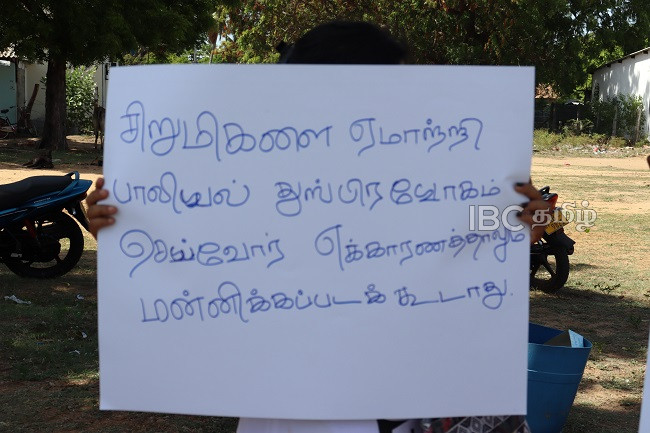 சிறுமிகளை ஏமாற்றி
பாலியல் துஸ்பிரயோகம்
செய்வோர் எக்காரணத்தாலும்
மன்னிக்கப்படக் கூடாது.
IBC தமிழ்